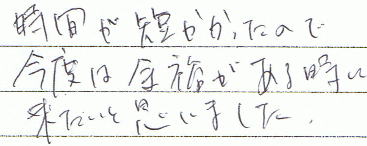 時間が短かかったので
今度は余裕がある時に
来たいと思いました.